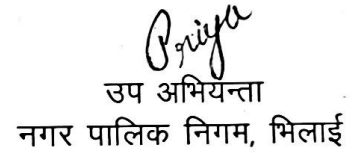 Priya
उप अभियन्ता
नगर पालिक निगम, भिलाई